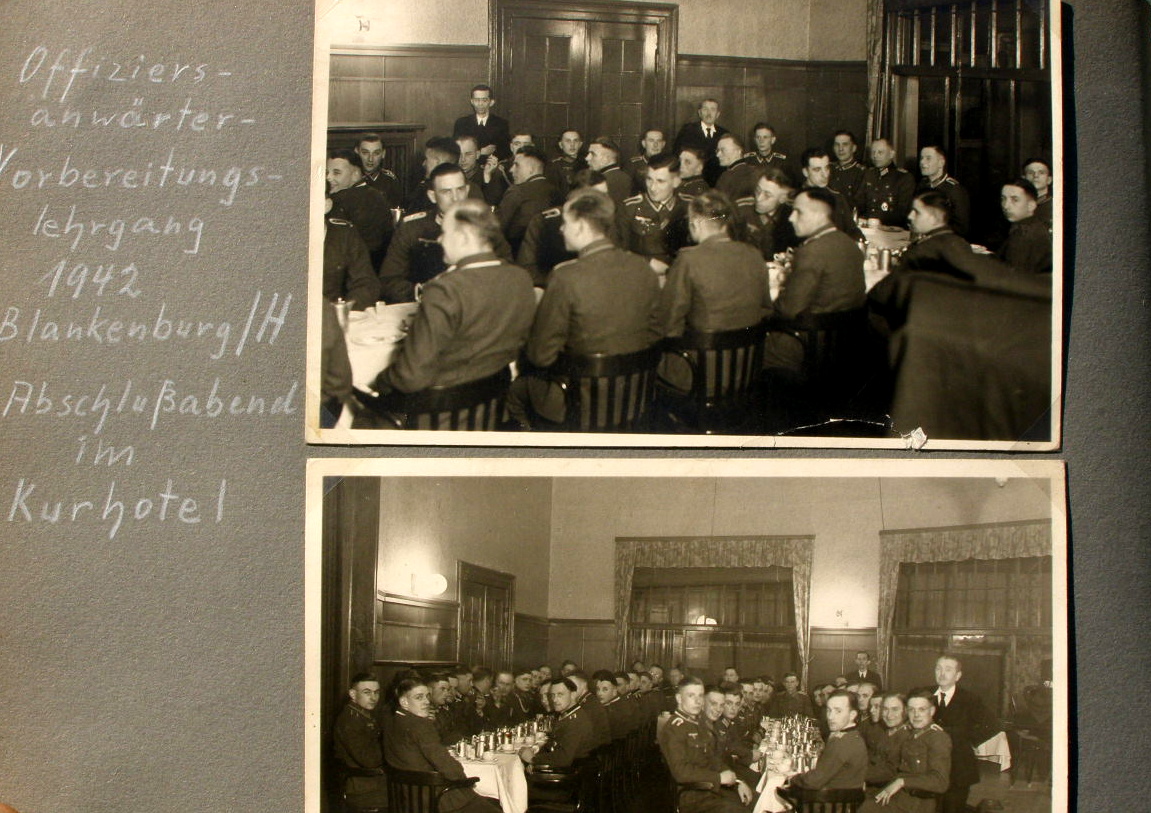 Offiziers-
anwärter-
Vorbereitungs-
lehrgang
1942
Blankenburg/H
Abschlußabend
im
Kurhotel